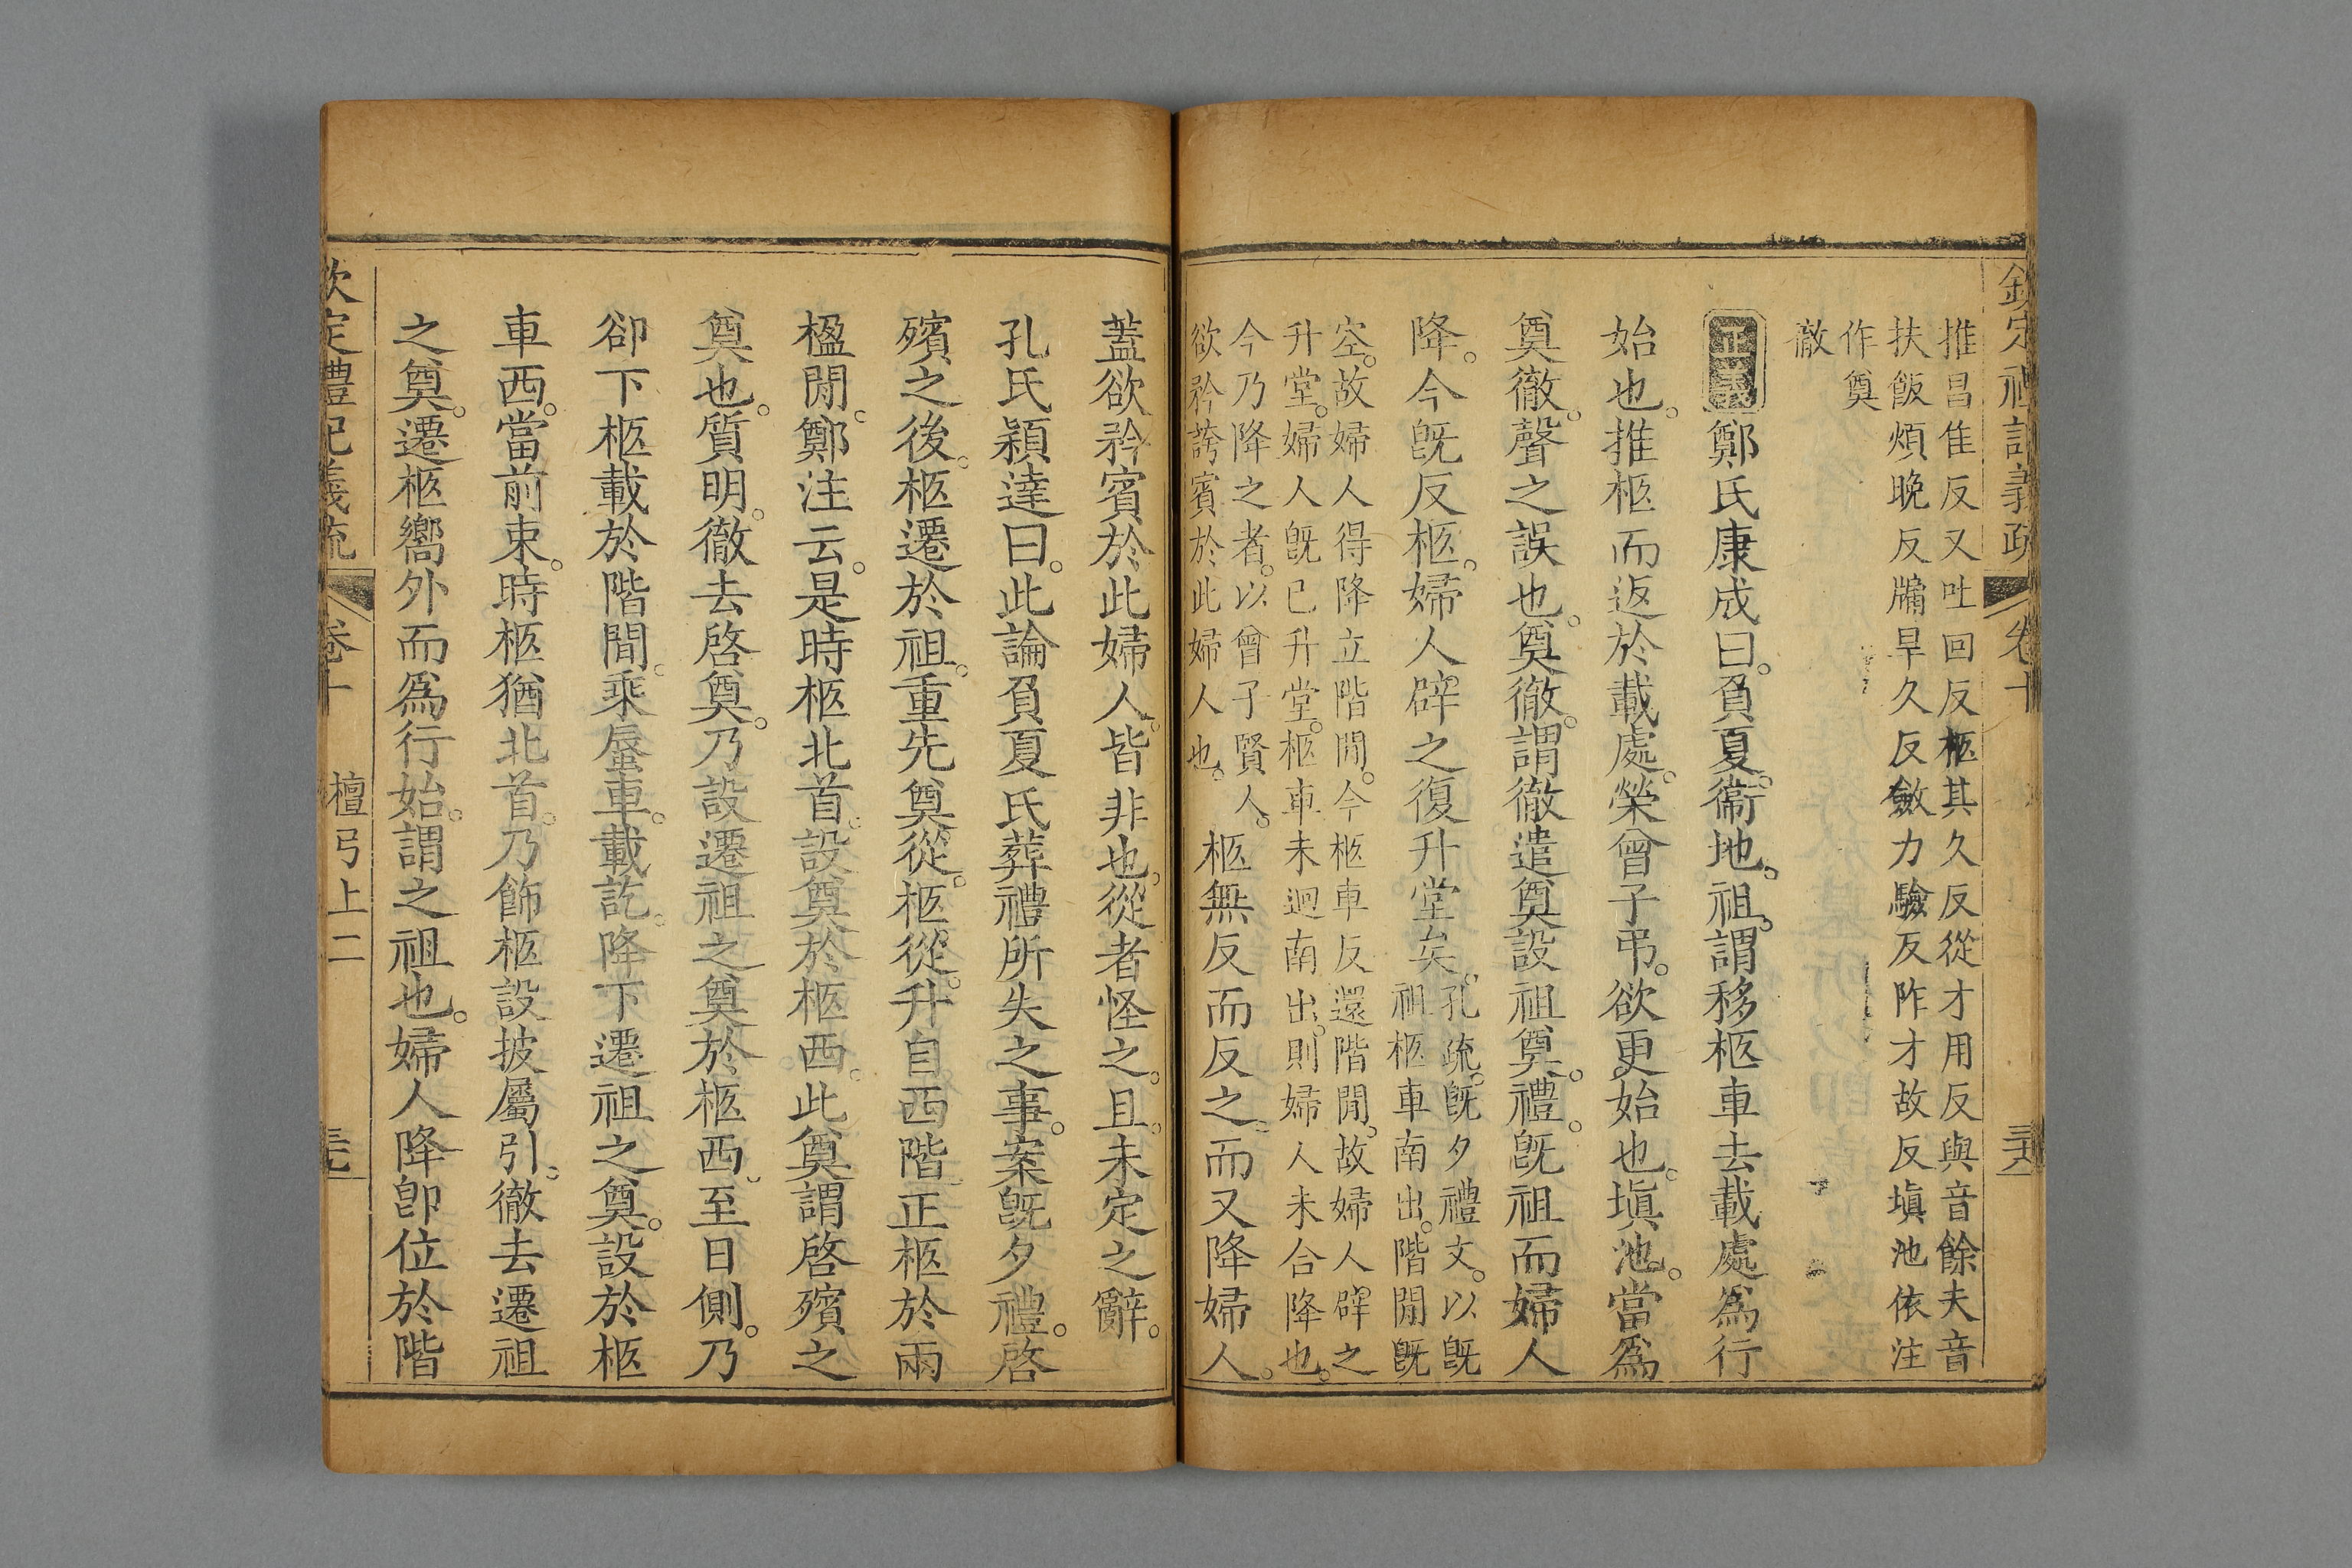 欽定禮記義疏 卷十 三六
推昌隹反又吐回反柩其久反從才用反與音餘夫音
扶飯煩晚反牖早久反斂力驗反阼才故反塡池依注
作奠
徹
正義鄭氏康成曰。負夏。衞地。祖。謂移柩車去載處爲行
始也。推柩而返於載處。榮曾子弔。欲更始也。塡池。當爲
奠徹。聲之誤也。奠徹。謂徹遣奠設祖奠。禮。旣祖而婦人
降。今旣反柩。婦人辟之復升堂矣。孔疏。旣夕禮文。以旣
祖柩車南出。階閒旣
空。故婦人得降立階閒。今柩車反還階閒。故婦人辟之
升堂。婦人旣已升堂。柩車未迴南出。則婦人未合降也。
今乃降之者。以曾子賢人。
欲矜誇賓於此婦人也。柩無反而反之。而又降婦人。
蓋欲矜賓於此婦人。皆非也。從者怪之。且。未定之辭。
孔氏穎達曰。此論負夏氏葬禮所失之事。案旣夕禮。啓
殯之後。柩遷於祖。重先奠從。柩從。升自西階。正柩於兩
楹閒。鄭注云。是時柩北首。設奠於柩西。此奠謂啓殯之
奠也。質明。徹去啓奠。乃設遷祖之奠於柩西。至日側。乃
卻下柩載於階閒。乘蜃車。載訖。降下遷祖之奠。設於柩
車西。當前束。時柩猶北首。乃飾柩設披屬引。徹去遷祖
之奠。遷柩嚮外而爲行始。謂之祖也。婦人降卽位於階
欽定禮記義疏 卷十 檀弓上二 三七